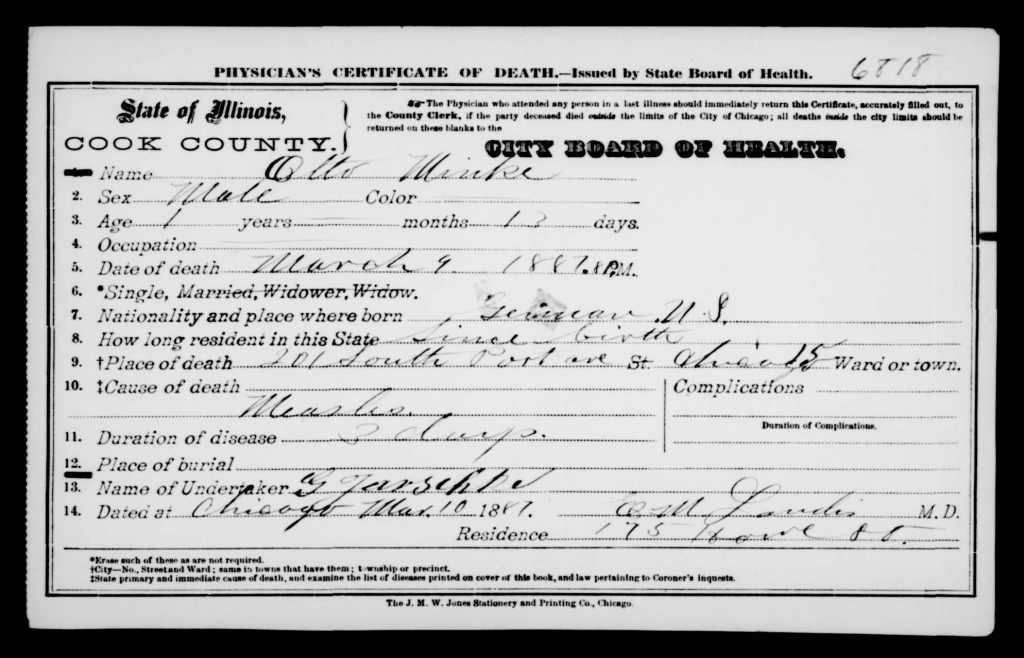 PHYSICIAN'S CERTIFICATE OF DEATH.—Issued by State Board of Health. 6818
State of Illinois,
COOK COUNTY.
The Physician who attended any person in a last illness should immediately return this Certificate, accurately filled out, to
the County Clerk, if the party deceased died outside the limits of the City of Chicago; all deaths inside the city limits should be
returned on these blanks to the
CITY BOARD OF HEALTH.
1. Name Otto Minke
2. Sex Male Color
3. Age 1 years months 13 days.
4. Occupation
5. Date of death March 9 1887. 8 P.M.
6. *Single, Married, Widower, Widow.
7. Nationality and place where born German U.S.
8. How long resident in this State Since birth
9. †Place of death 201 South Port ave St. Chicago 15 Ward or town.
10. ‡Cause of death Complications
Measles.
Duration of Complications.
11. Duration of disease 3 days.
12. Place of burial
13. Name of Undertaker G
14. Dated at Chicago Mar. 10 1887. E M Landis M.D.
Residence 175 St.
*Erase such of these as are not required.
†City—No., Street and Ward; same in towns that have them; township or precinct.
‡State primary and immediate cause of death, and examine the list of diseases printed on cover of this book, and law pertaining to Coroner's inquests.
The J. M. W. Jones Stationery and Printing Co., Chicago.